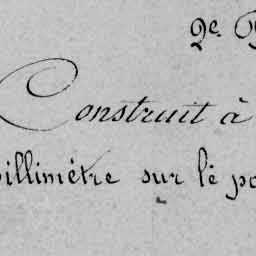 2e.
Construit à
illimètre sur le